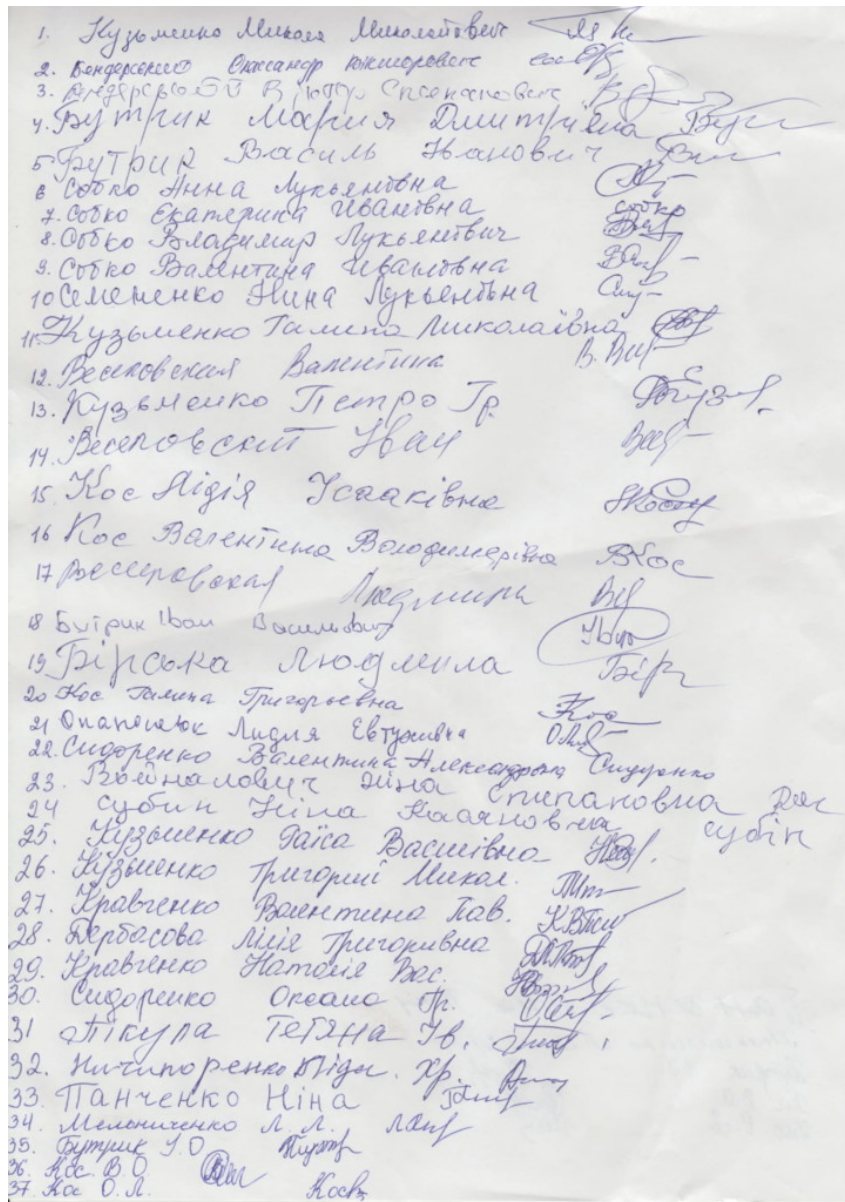 1. Кузьменко Микола Миколайович
2. Бендерський Олександр Вікторович
3. Бендерський Віктор Степанович
4. Бутрик Мария Дмитрівна
5 Бутрик Василь Іванович
6 Собко Анна Лукьянівна
7. Собко Екатерина Иванівна собко
8. Собко Владимир Лукьянівич
9. Собко Валентина Ивановна
10 Семененко Нина Лукьянівна
11. Кузьменко Галина Миколаївна
12. Веселовская Валентина
13. Кузьменко Петро Гр.
14. Веселовский Иван
15. Кос Лідія Ісааківна
16 Кос Валентина Володимирівна ВКос
17 Веселовская Людмила
18 Бутрик Іван Васильович
19 Бірська Людмила Бір
20 Кос Галина Григорьевна Кос
21 Лидия Евтухивна
22. Сидоренко Валентина Александровна Сидоренко
23. Войналович Ніна Степановна
24 Субин Ніна Касяновна субін
25. Кузьменко Раїса Василівна
26. Кузьменко Григорій Микол.
27. Кравченко Валентина Пав.
28. Дербасова Лілія Григоривна
29. Кравченко Наталія Вас.
30. Сидоренко Оксана Гр.
31 Пікула Тетяна Ів.
32. Ничипоренко Лідія Хр.
33. Панченко Ніна
34. Мельниченко Л. Л.
35. Бутрик І.О
36. Кос В.О.
37. Кос О.Л.